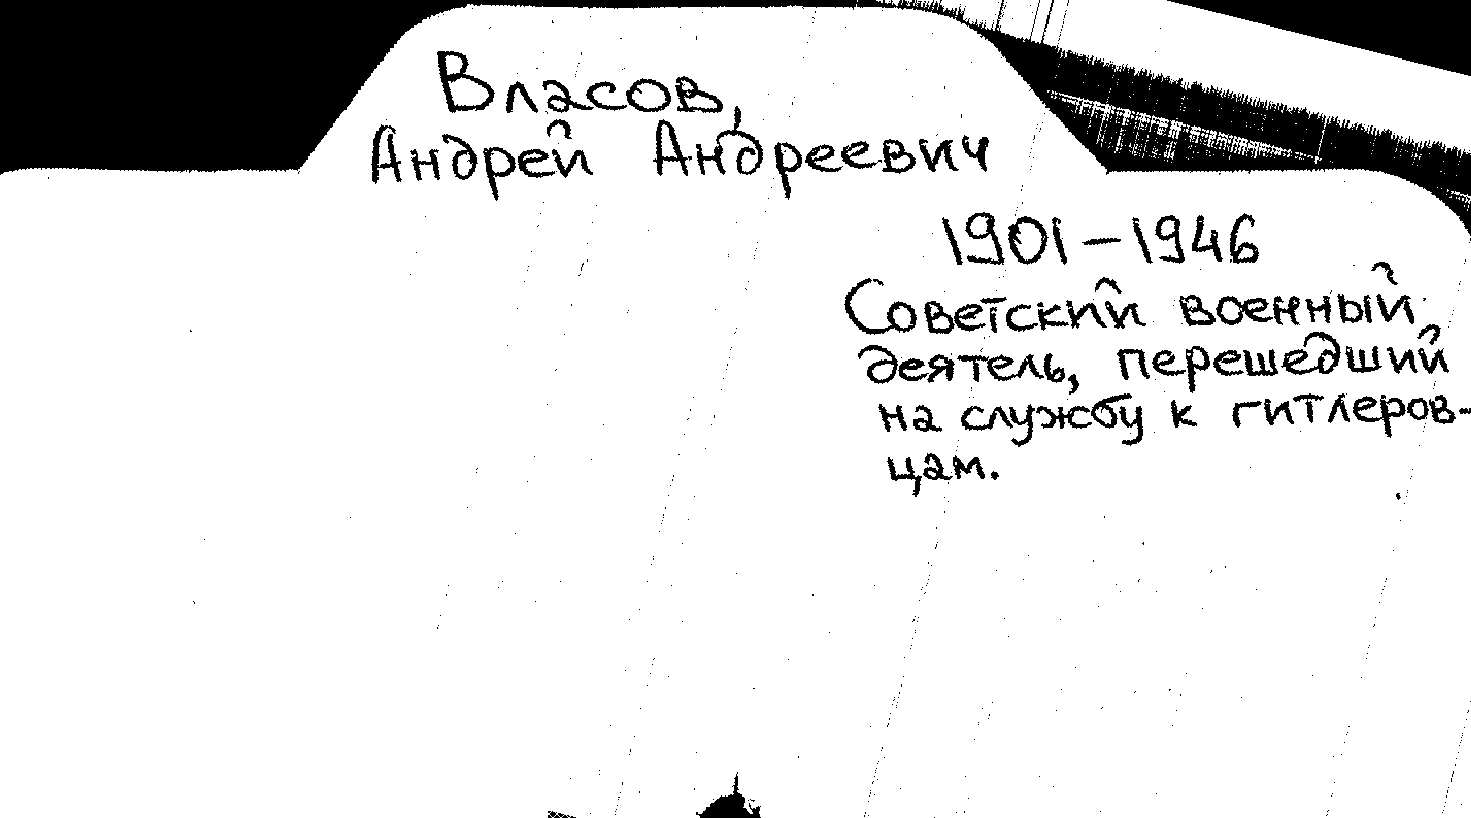 Власов,
Андрей Андреевич
1901-1946
Советский военный
деятель, перешедший
на службу к гитлеров-
цам.